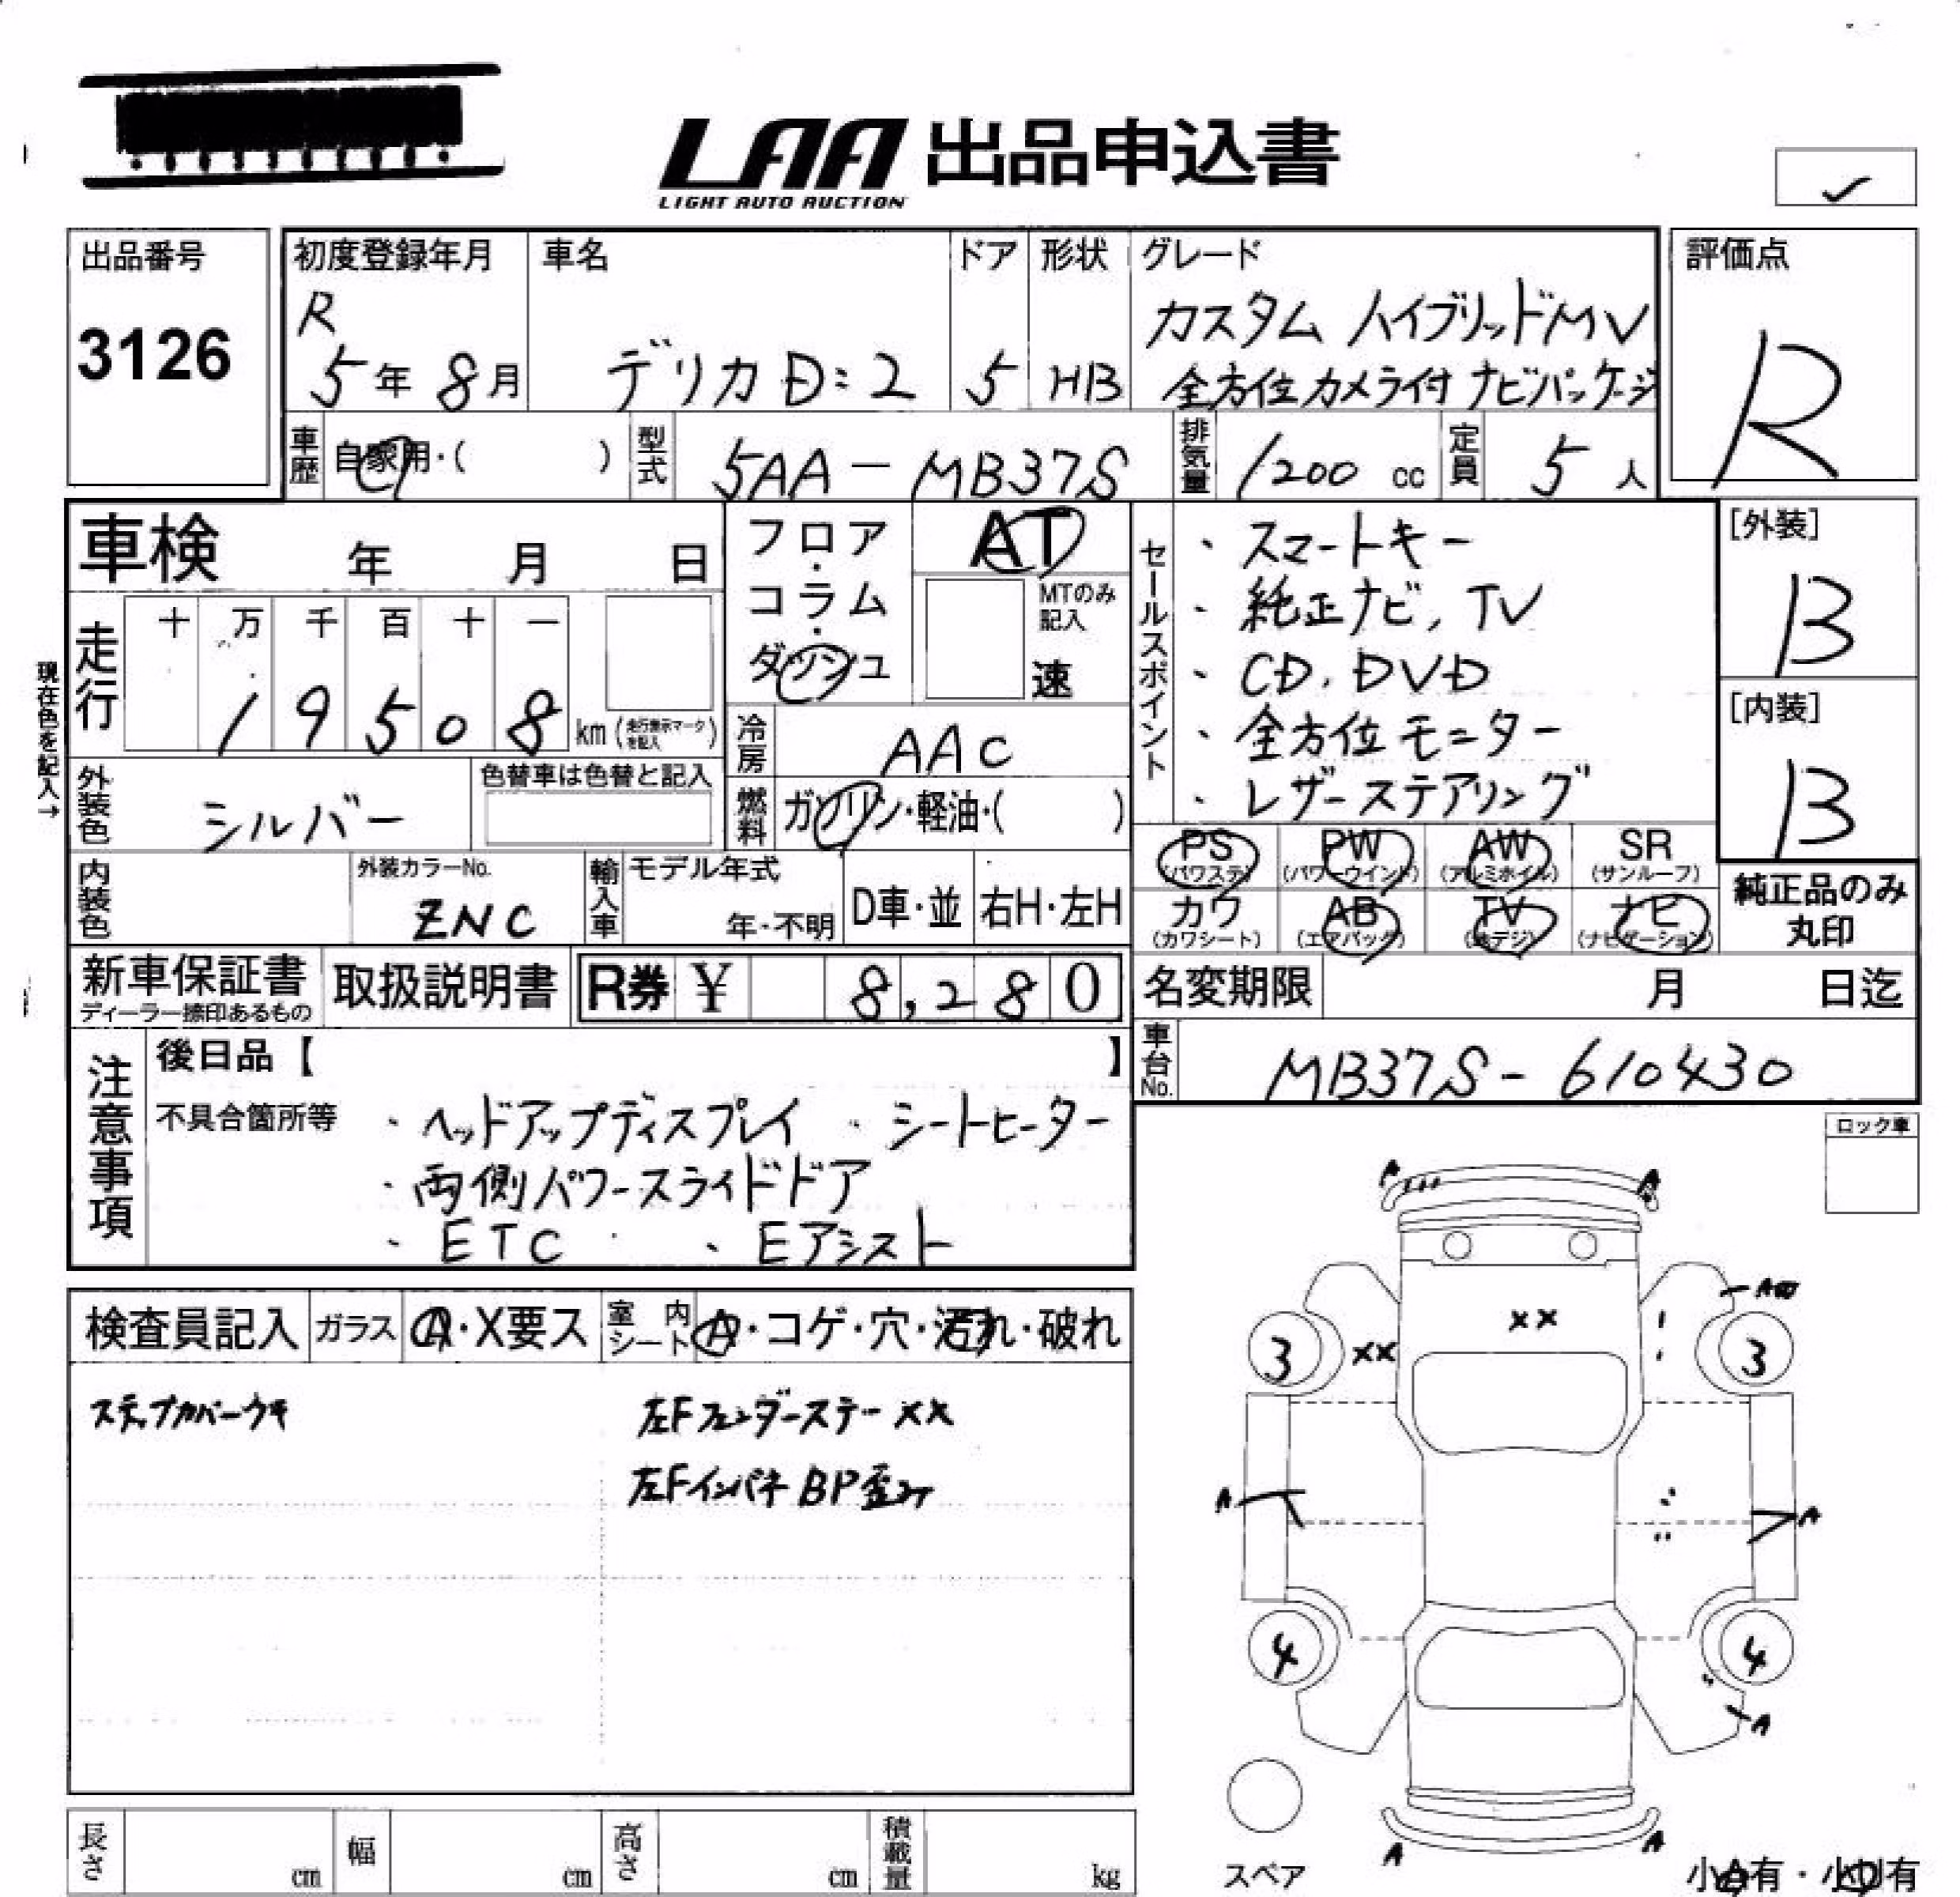 LAA 出品申込書
LIGHT AUTO AUCTION
出品番号
3126
初度登録年月
R
5年 8月
車名
デリカD:2
ドア
5
形状
HB
グレード
カスタム ハイブリッドMV
全方位カメラ付 ナビパッケージ
評価点
R
車歴
自家用・( )
型式
5AA-MB37S
排気量
1200 cc
定員
5 人
車検 年 月 日
フロア・コラム・ダッシュ
AT
MTのみ記入
速
セールスポイント
・スマートキー
・純正ナビ, TV
・CD, DVD
・全方位モニター
・レザーステアリング
[外装]
B
[内装]
B
現在色を記入→
走行
十 万 千 百 十 一
1 9 5 0 8 km(走行表示マークを記入)
冷房
AAC
外装色
シルバー
色替車は色替と記入
燃料
ガソリン・軽油・( )
PS (パワステ)
PW (パワーウインド)
AW (アルミホイル)
SR (サンルーフ)
カワ (カワシート)
AB (エアバッグ)
TV (地デジ)
ナビ (ナビゲーション)
純正品のみ丸印
内装色
外装カラーNo.
ZNC
輸入車
モデル年式
年・不明
D車・並
右H・左H
新車保証書
ディーラー捺印あるもの
取扱説明書
R券 ¥ 8,280
名変期限 月 日迄
車台No.
MB37S-610430
注意事項
後日品【 】
不具合箇所等
・ヘッドアップディスプレイ ・シートヒーター
・両側パワースライドドア
・ETC ・Eアシスト
ロック車
検査員記入
ガラス
A・X要ス
室内シート
A・コゲ・穴・汚れ・破れ
ステップカバーウキ
左Fフェンダーステー XX
左Fインパネ BP歪み
A A
XX
XX
3 3
A A
4 4
A
A A
スペア
小A有・小U有
長さ cm
幅 cm
高さ cm
積載量 kg